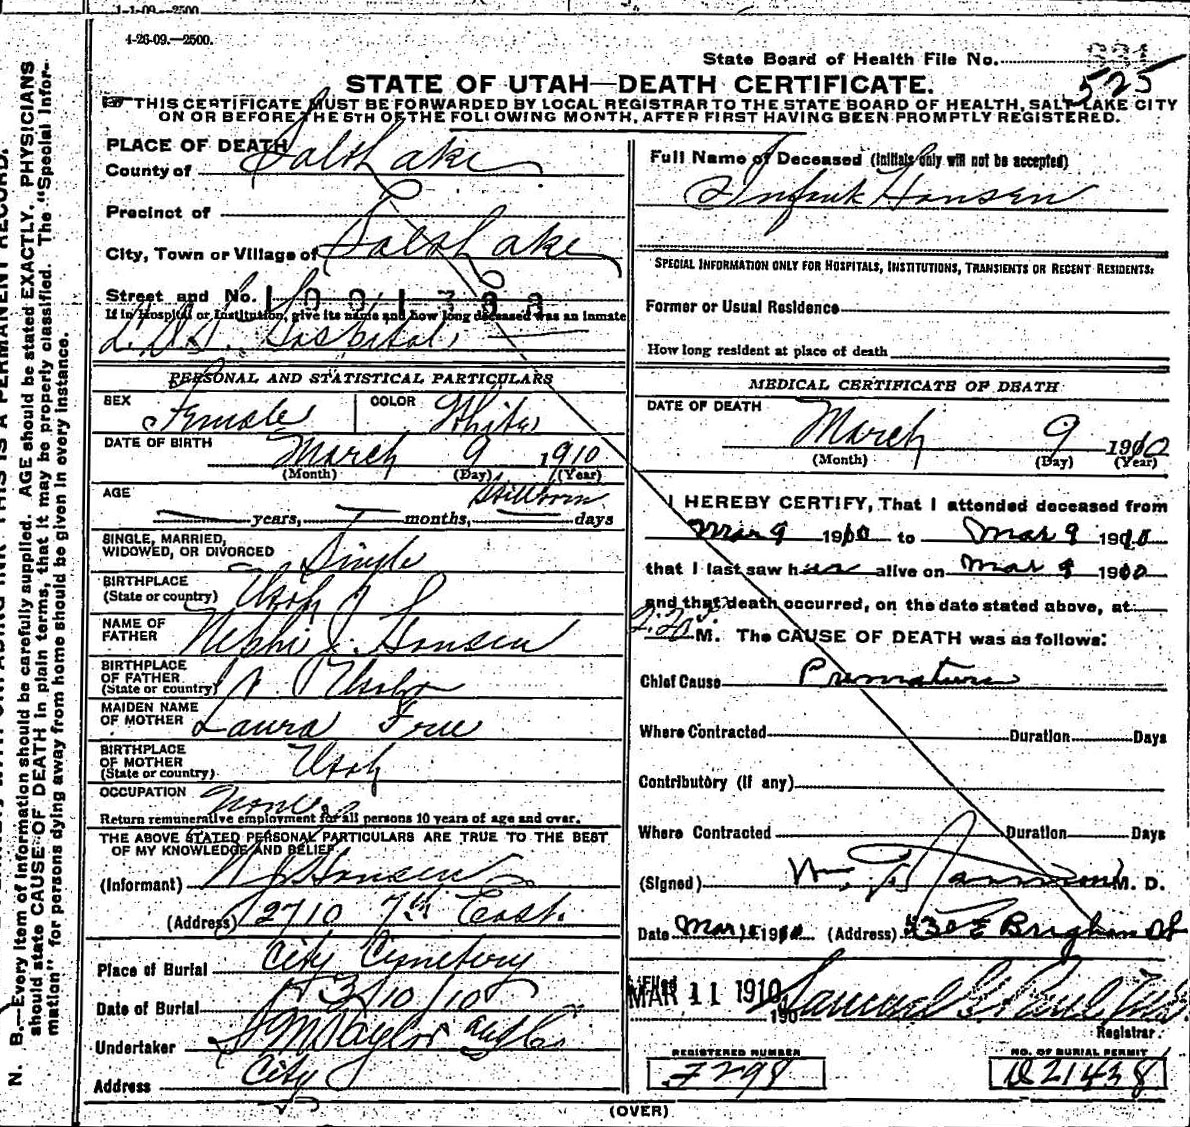 1-1-09.—2500.
4-26-09.—2500.
State Board of Health File No.
525
STATE OF UTAH—DEATH CERTIFICATE.
THIS CERTIFICATE MUST BE FORWARDED BY LOCAL REGISTRAR TO THE STATE BOARD OF HEALTH, SALT LAKE CITY
ON OR BEFORE THE 5TH OF THE FOLLOWING MONTH, AFTER FIRST HAVING BEEN PROMPTLY REGISTERED.
PLACE OF DEATH
County of Salt Lake
Precinct of
City, Town or Village of Salt Lake
Street and No.
If in Hospital or Institution, give its name and how long deceased was an inmate
L.D.S. Hospital
PERSONAL AND STATISTICAL PARTICULARS
SEX Female COLOR White
DATE OF BIRTH March 9 1910
(Month) (Day) (Year)
AGE Stillborn
years, months, days
SINGLE, MARRIED,
WIDOWED, OR DIVORCED Single
BIRTHPLACE
(State or country) Utah
NAME OF
FATHER Nephi J. Hansen
BIRTHPLACE
OF FATHER
(State or country) Utah
MAIDEN NAME
OF MOTHER Laura
BIRTHPLACE
OF MOTHER
(State or country) Utah
OCCUPATION None
Return remunerative employment for all persons 10 years of age and over.
THE ABOVE STATED PERSONAL PARTICULARS ARE TRUE TO THE BEST
OF MY KNOWLEDGE AND BELIEF
(Informant) N J Hansen
(Address) 2710 7th East.
Place of Burial City Cemetery
Date of Burial 3/10/10
Undertaker S M Taylor and Co
Address City
Full Name of Deceased (Initials only will not be accepted)
Infant Hansen
SPECIAL INFORMATION ONLY FOR HOSPITALS, INSTITUTIONS, TRANSIENTS OR RECENT RESIDENTS:
Former or Usual Residence
How long resident at place of death
MEDICAL CERTIFICATE OF DEATH
DATE OF DEATH
March 9 1910
(Month) (Day) (Year)
I HEREBY CERTIFY, That I attended deceased from
Mar 9 1910 to Mar 9 1910
that I last saw h alive on Mar 9 1910
and that death occurred, on the date stated above, at
M. The CAUSE OF DEATH was as follows:
Chief Cause Premature
Where Contracted Duration Days
Contributory (if any)
Where Contracted Duration Days
(Signed) M. D.
Date Mar 1910 (Address) E Brigham St
Filed
MAR 11 1910
190
Registrar.
REGISTERED NUMBER
F298
NO. OF BURIAL PERMIT
D21438
(OVER)
N. B.—Every item of information should be carefully supplied. AGE should be stated EXACTLY. PHYSICIANS
should state CAUSE OF DEATH in plain terms, that it may be properly classified. The "Special Infor-
mation" for persons dying away from home should be given in every instance.